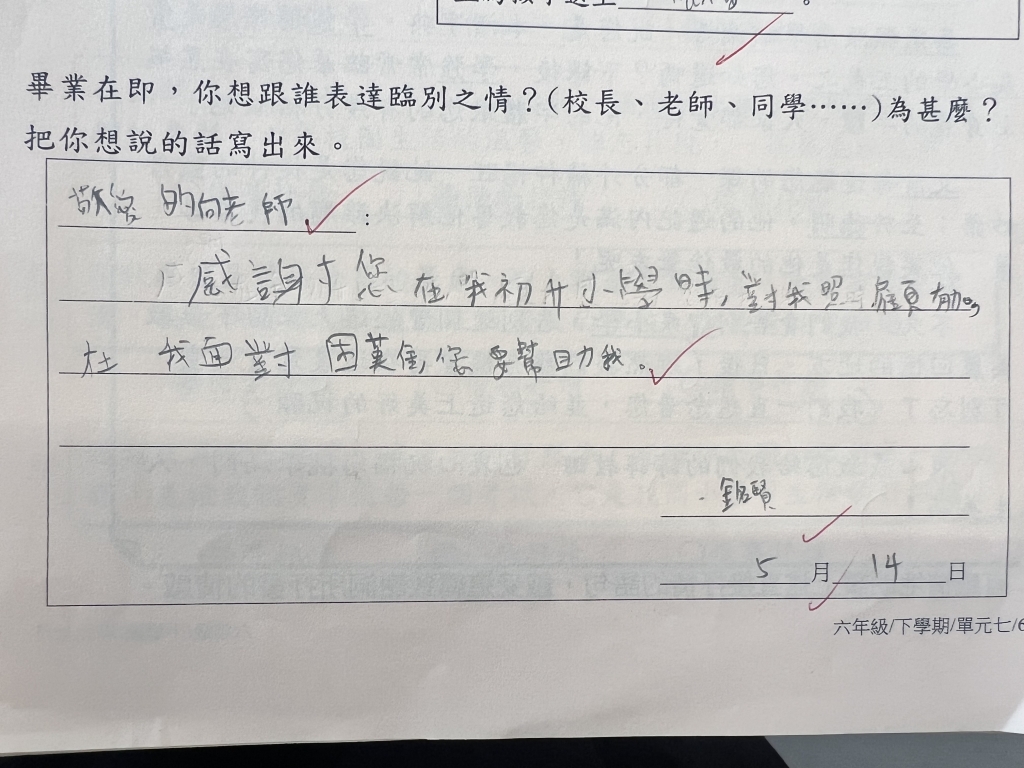 畢業在即，你想跟誰表達臨別之情？（校長、老師、同學……）為甚麼？
把你想說的話寫出來。
敬愛的向老師：
感謝您在我初升小學時，對我照顧有加，
在我面對困難，您幫助我。
賢
5月14日
六年級/下學期/單元七/6